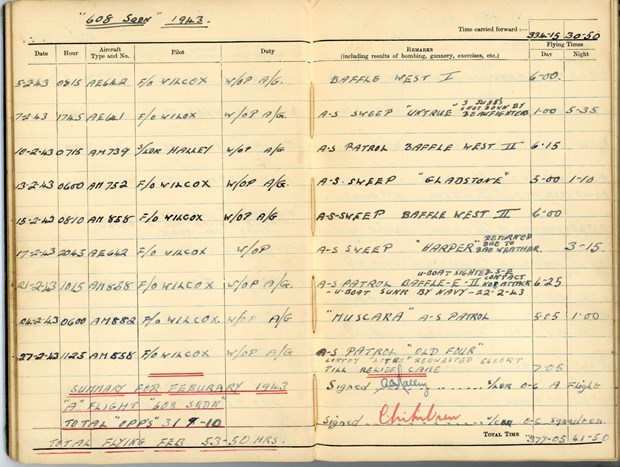 "608 SQDN" 1943.
Time carried forward :— 334-15 30-50
Date Hour Aircraft Type and No. Pilot Duty REMARKS (including results of bombing, gunnery, exercises, etc.) Flying Times Day Night
5-2-43 0815 AE642 F/O WILCOX W/OP A/G. BAFFLE WEST I 6-00.
7-2-43 1745 AE641 F/O WILOX W/OP A/G. A-S SWEEP "UNTRUE" 3 JU88's SHOT DOWN BY BEAUFIGHTERS 1-00 5-35.
10-2-43 0715 AM739 S/LDR HALLEY W/OP A/G A-S PATROL BAFFLE WEST II 6-15
13-2-43 0600 AM752 F/O WILCOX W/OP A/G. A-S. SWEEP "GLADSTONE" 5-00 1-10
15-2-43 0810 AM858 F/O WILCOX W/OP A/G A-S-SWEEP BAFFLE WEST II 6-00
17-2-43 2045 AE642 F/O WILCOX W/OP A-S SWEEP "HARPER" RETURNED DUE TO BAD WEATHER. 3-15.
21-2-43 1015 AM858 F/O WILCOX. W/OP A/G. U-BOAT SIGHTED-S-E
A-S PATROL BAFFLE-E-II CONTACT NO ATTACK 6-25
-U-BOAT SUNK BY NAVY-22-2-43
24-2-43 0600 AM882 F/O WILCOX. W/OP A/G "MUSCARA" A-S PATROL 5-05 1-00
27-2-43 1125 AM858 F/O WILCOX W/OP A/G A-S PATROL "OLD FOUR"
CONVOY REQUESTED ESCORT
TILL RELIEF CAME 7-05
SUMMARY FOR FEBURARY 1943
"A" FLIGHT "608 SQDN"
TOTAL "OPPS" 31 9-10
TOTAL FLYING FEB 53-50 HRS.
Signed Halley S/LDR O-C A Flight
Signed O-C Squadron.
TOTAL TIME 377-05 41-50